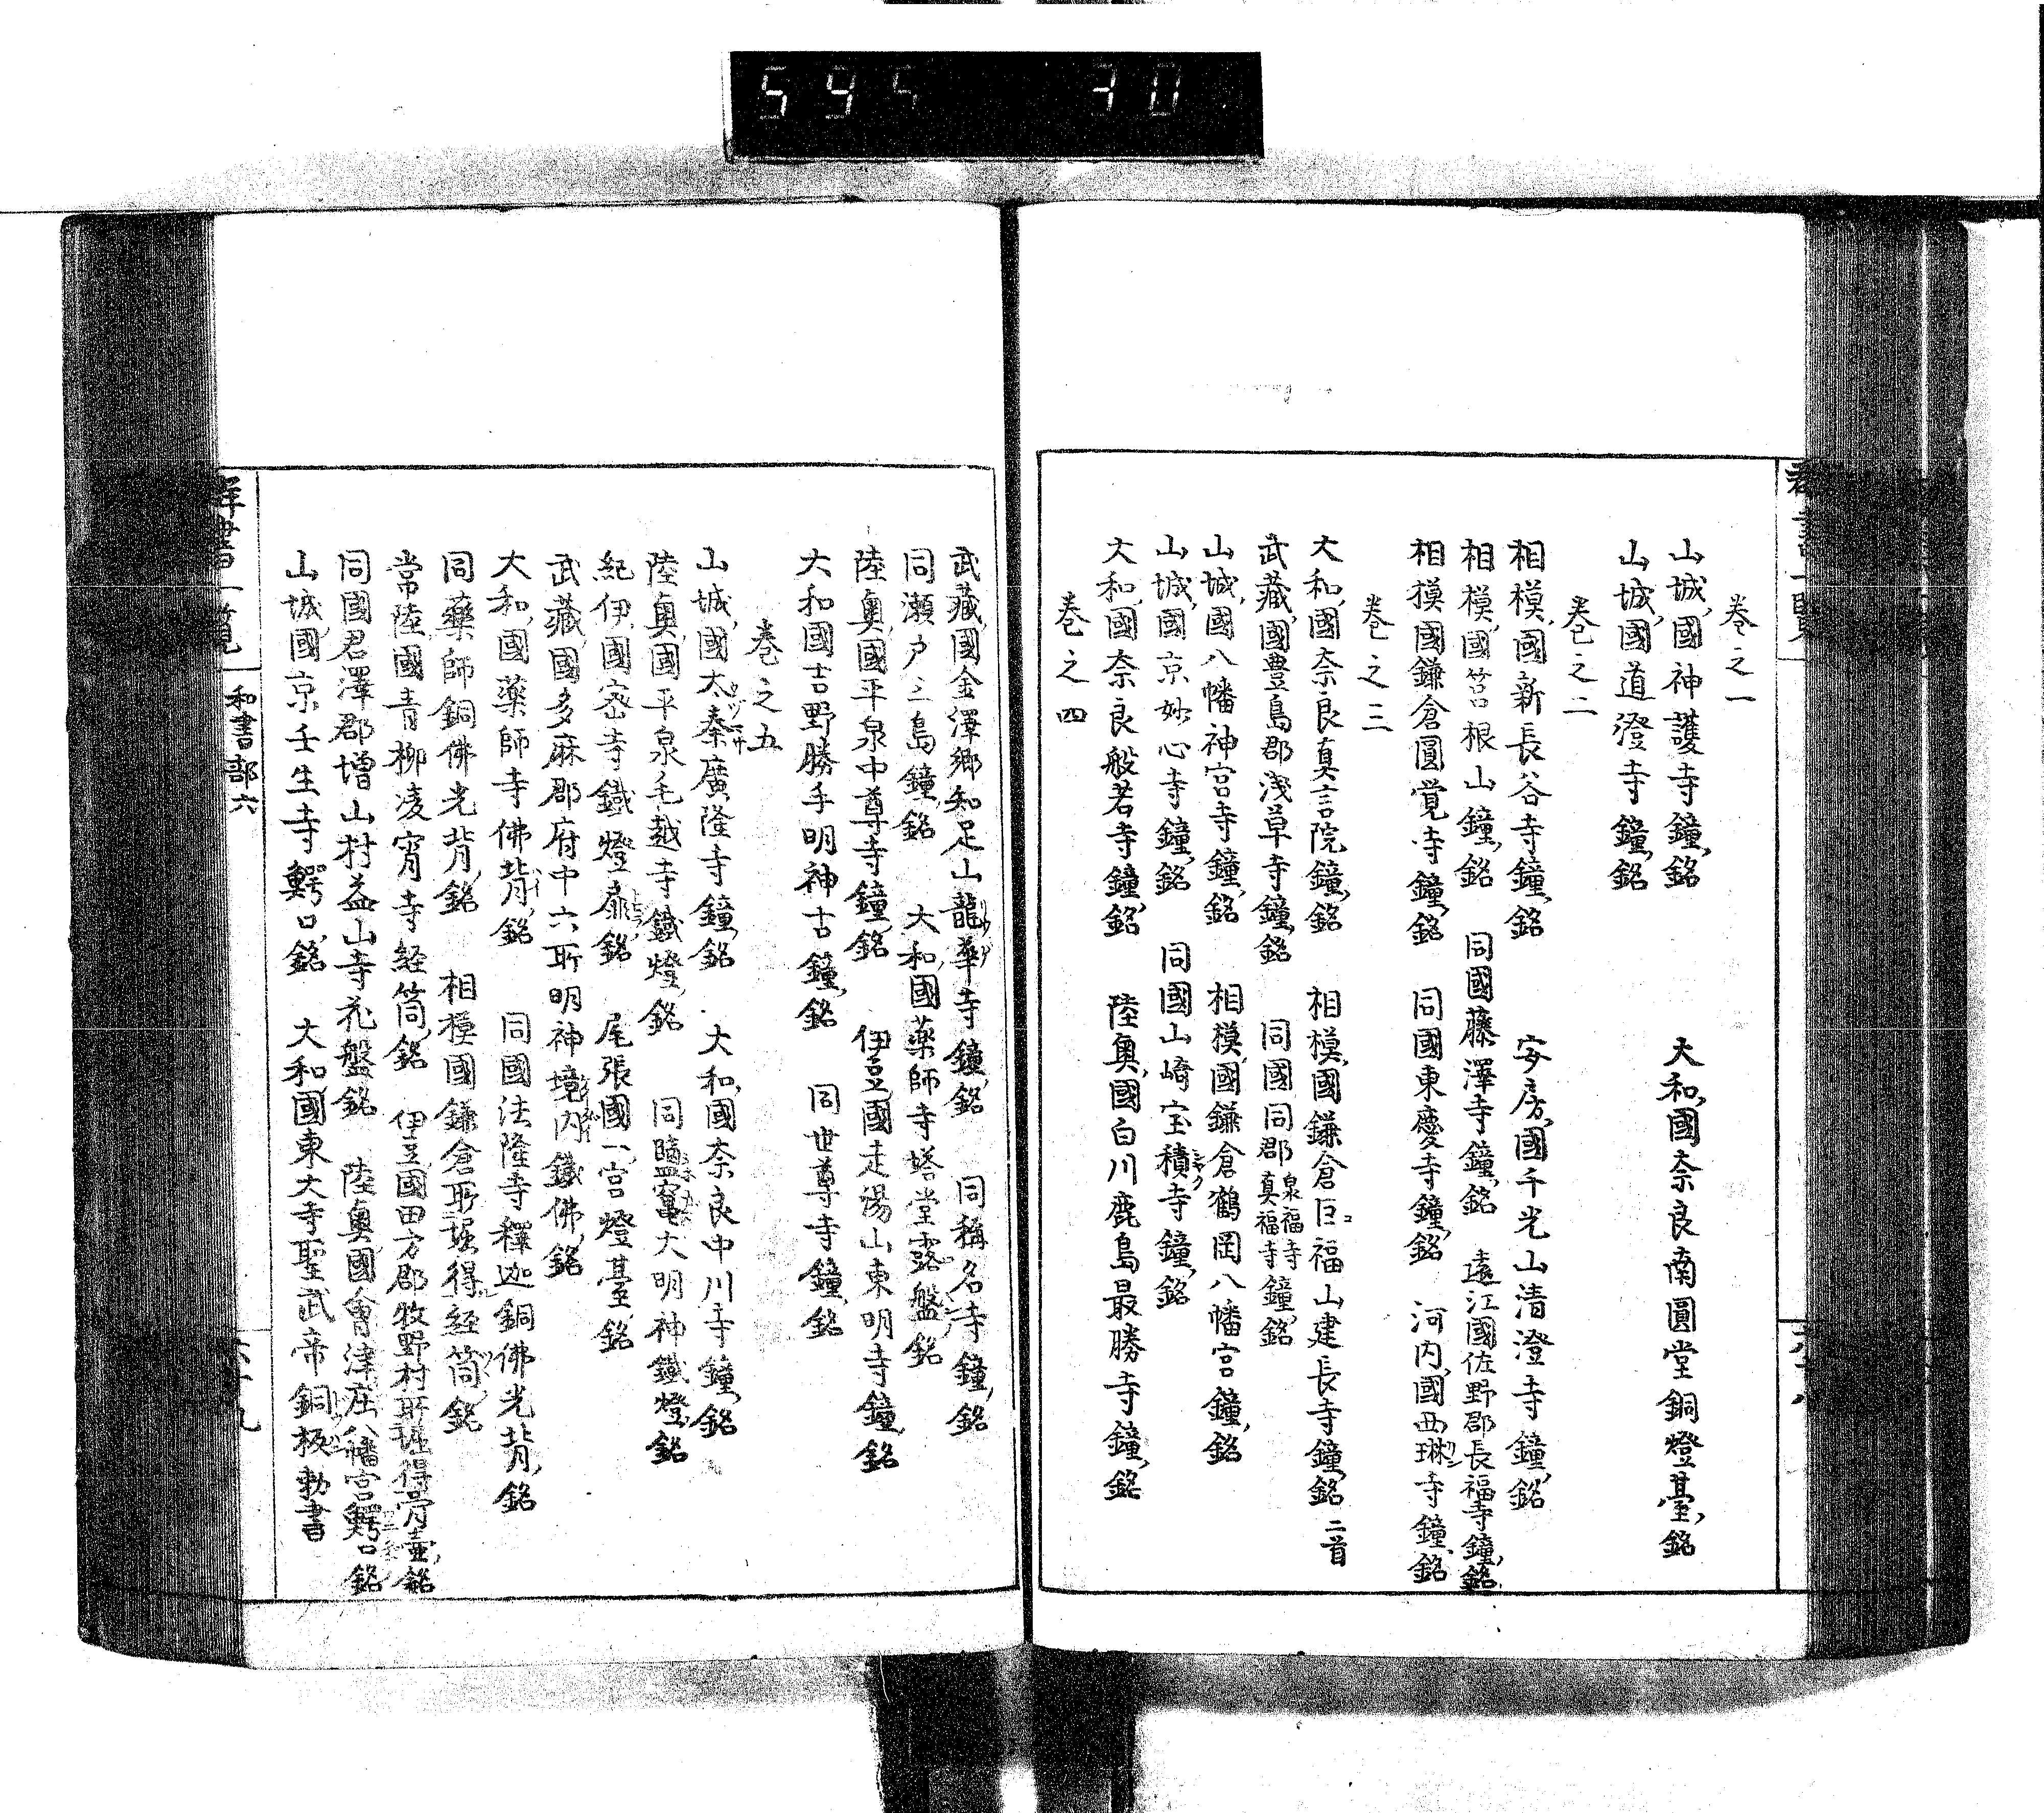 595 30
群書一覧
巻之一
山城國神護寺鐘銘 大和國奈良南圓堂銅燈䑓銘
山城國道澄寺鐘銘
巻之二
相模國新長谷寺鐘銘 安房國千光山清澄寺鐘銘
相模國筥根山鐘銘 同國藤澤寺鐘銘 遠江國佐野郡長福寺鐘銘
相模國鎌倉圓覚寺鐘銘 同國東慶寺鐘銘 河内國西琳寺鐘銘
巻之三
大和國奈良真言院鐘銘 相模國鎌倉巨福山建長寺鐘銘 二首
武藏國豊島郡浅草寺鐘銘 同國同郡泉福寺真福寺鐘銘
山城國八幡神宮寺鐘銘 相模國鎌倉鶴岡八幡宮鐘銘
山城國京妙心寺鐘銘 同國山崎宝積寺鐘銘
大和國奈良般若寺鐘銘 陸奥國白川鹿島最勝寺鐘銘
巻之四
武藏國金澤郷知足山龍華寺鐘銘 同稱名寺鐘銘
同瀬戸三島鐘銘 大和國薬師寺塔堂露盤銘
陸奥國平泉中尊寺鐘銘 伊豆國走湯山東明寺鐘銘
大和國吉野勝手明神古鐘銘 同世尊寺鐘銘
巻之五
山城國太秦廣隆寺鐘銘 大和國奈良中川寺鐘銘
陸奥國平泉毛越寺鐵燈銘 同鹽竃大明神鐵燈銘
紀伊國宻寺鐵燈扉銘 尾張國一宮燈䑓銘
武藏國多麻郡府中六所明神境内鐵佛銘
大和國薬師寺佛背銘 同國法隆寺釋迦銅佛光背銘
同藥師銅佛光背銘 相模國鎌倉所堀得経筒銘
常陸國青柳凌宵寺経筒銘 伊豆國田方郡牧野村所堀得骨壷銘
同國君澤郡増山村益山寺花盤銘 陸奥國會津庄八幡宮鰐口銘
山城國京壬生寺鰐口銘 大和國東大寺聖武帝銅板勅書
群書一覧 和書部六